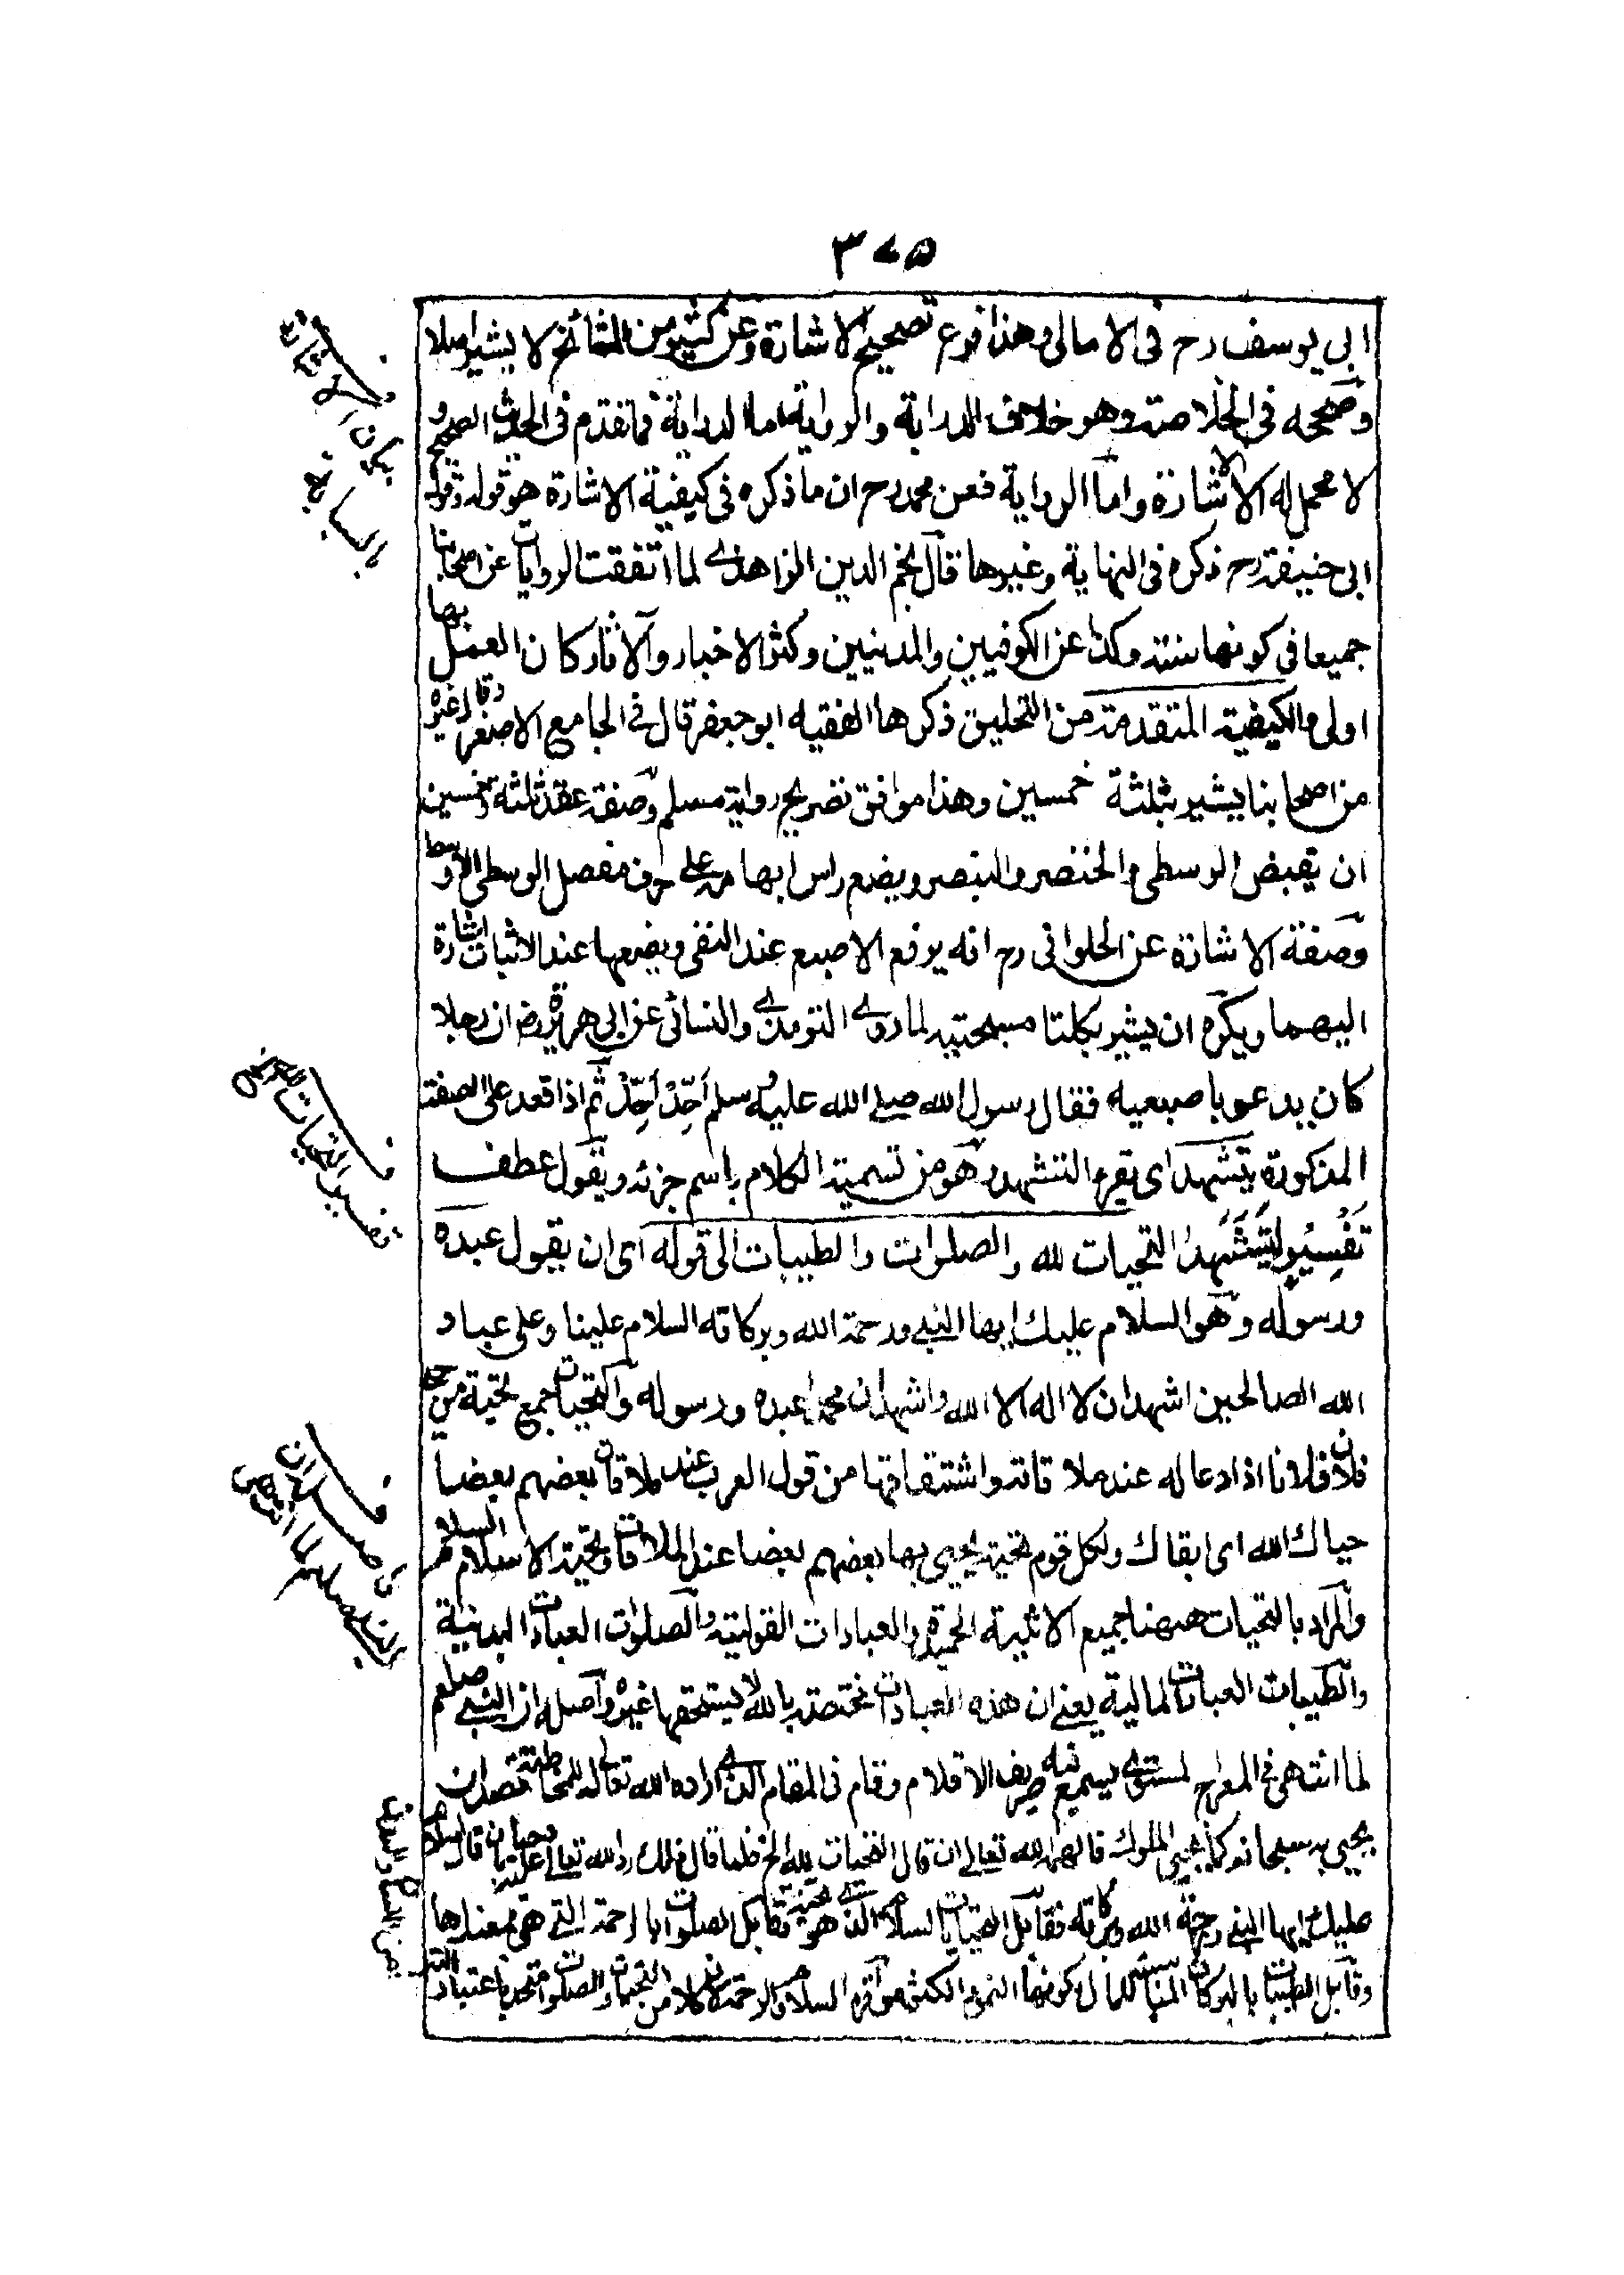 ٣٧٥
ابى يوسف رح فى الامالى وهذا فرع تصحيح الاشارة وعن كثير من المشائخ لا يشير اصلا
وصححه فى الخلاصة وهو خلاف الدراية والرواية اما الدراية فما تقدم فى الحديث الصحيح و
لا محمل له الا الاشارة واما الرواية فعن محمد رح ان ما ذكره فى كيفية الاشارة هو قوله وقول
ابى حنيفة رح ذكره فى النهاية وغيرها قال نجم الدين الزاهدى لما اتفقت الروايات عن اصحابنا
جميعا فى كونها سنة وكذا عن الكوفيين والمدنيين وكثر الاخبار والآثار كان العمل بها
اولى والكيفية المتقدمة من التحليق ذكرها الفقيه ابو جعفر قال فى الجامع الاصغر وقال غيره
من اصحابنا يشير بثلثة خمسين وهذا موافق تصريح رواية مسلم وصفة عقد ثلثة وخمسين
ان يقبض الوسطى والخنصر والبنصر ويضع راس ابهامه على حرف مفصل الوسطى الاوسط
وصفة الاشارة عن الحلوانى رح انه يرفع الاصبع عند النفى ويضعها عند الاثبات اشارة
اليهما ويكره ان يشير بكلتا مسبحتيه لما روى الترمذى والنسائى عن ابى هريرة رض ان رجلا
كان يدعو باصبعيه فقال رسول الله صلى الله عليه وسلم اَحِّدْ اَحِّدْ ثم اذا قعد على الصفة
المذكورة يتشهد اى يقرء التشهد وهو من تسمية الكلام باسم جزئه ويقول عطف
تفسير ليتشهد التحيات لله والصلوات والطيبات الى قوله اى ان يقول عبده
ورسوله وهو السلام عليك ايها النبى ورحمة الله وبركاته السلام علينا وعلى عباد
الله الصالحين اشهد ان لا اله الا الله واشهد ان محمدا عبده ورسوله والتحيات جمع تحية من حيّا
فلان فلانا اذا دعا له عند ملاقاته واشتقاقها من قول العرب عند ملاقات بعضهم بعضا
حياك الله اى ابقاك ولكل قوم تحية يحيى بها بعضهم بعضا عند الملاقات وتحية الاسلام السلام
والمراد بالتحيات ههنا جميع الاثنية الحميدة والعبادات القولية والصلوات العبادات البدنية
والطيبات العبادات المالية يعنى ان هذه العبادات مختصة بالله لا يستحقها غيره واصله ان النبى صلعم
لما انتهى فى المعراج لمستوى يسمع فيه صريف الاقلام وقام فى المقام الذى اراده الله تعالى للمخاطبة قصد ان
يحيى به سبحانه كما يحيى الملوك فالهمه الله تعالى ان قال التحيات لله الخ فلما قال ذلك رد الله تعالى عليه بان قال السلام
عليك ايها النبى ورحمة الله وبركاته فقابل التحيات بالسلام الذى هو تحية وقابل الصلوات بالرحمة التى هى بمعناها
وقابل الطيبات بالبركات المناسبة للمال لكونها النمو والكثرة
تفسير التحيات